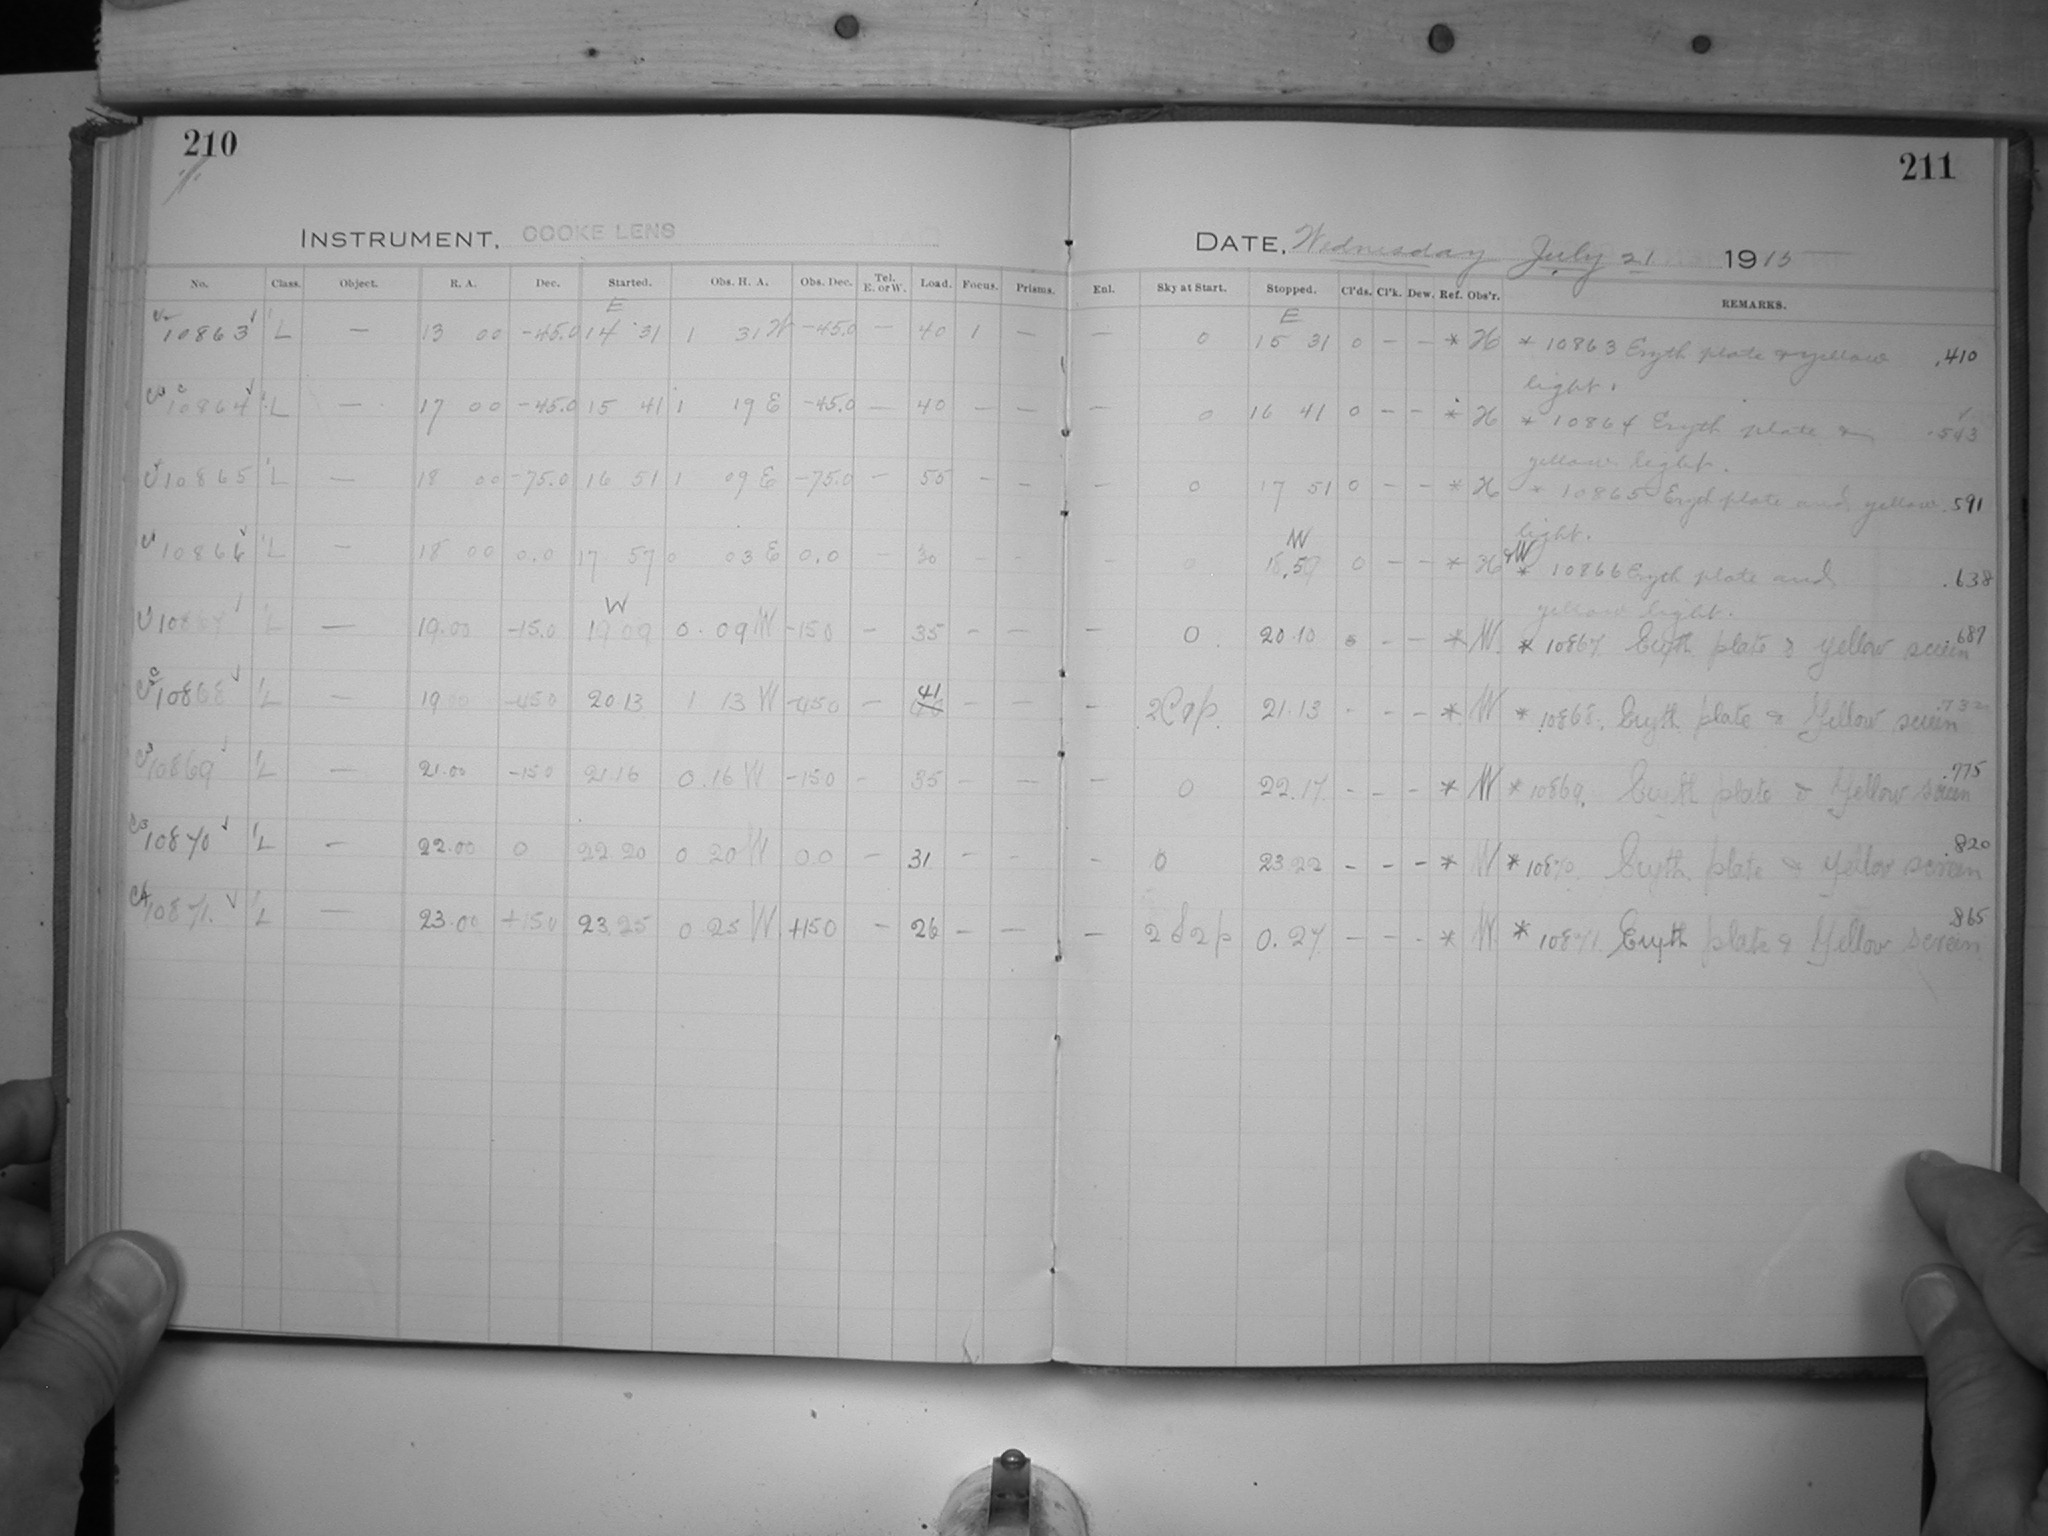 210
211
INSTRUMENT, COOKE LENS
DATE, Wednesday July 21 1915
No. Class. Object. R. A. Dec. Started. Obs. H. A. Obs. Dec. Tel. E. or W. Load. Focus. Prisms. Enl. Sky at Start. Stopped. Cl'ds. Cl'k. Dew. Ref. Obs'r. REMARKS.
E E
10863 L — 13 00 -45.0 14 31 1 31 W -45.0 — 40 1 — — 0 15 31 0 - - * H * 10863 Eryth plate & yellow .410
light.
10864 L — 17 00 -45.0 15 41 1 19 E -45.0 — 40 — — — 0 16 41 0 - - * H * 10864 Eryth plate & .543
yellow light.
10865 L — 18 00 -75.0 16 51 1 09 E -75.0 — 55 - - — 0 17 51 0 - - * H * 10865 Eryd plate and yellow .591
light.
W
10866 L — 18 00 0.0 17 57 0 03 E 0.0 — 30 - - - 0 18.59 0 - - * H & W * 10866 Eryth plate and .638
yellow light.
W
10867 L — 19.00 -15.0 19 09 0.09 W -150 — 35 - — — 0. 20.10 0 - - * W. * 10867. Eryth plate & Yellow screen .687
10868 L — 19 00 -450 20 13 1 13 W -450 — 41 — — — 21.13 - - - * W * 10868. Eryth plate & Yellow screen .732
10869 L — 21.00 -150 21.16 0.16 W -150 - 35 - — — 0 22.17. - - - * W * 10869. Eryth plate & Yellow screen .775
10870 L — 22.00 0 22 20 0 20 W 0.0 — 31 - - - 0 23 22 - - - * W * 10870. Eryth plate & Yellow screen .820
10871. L — 23.00 +150 23.25 0.25 W +150 — 26 - — — 0.27 - - - * W * 10871. Eryth plate & Yellow screen .865